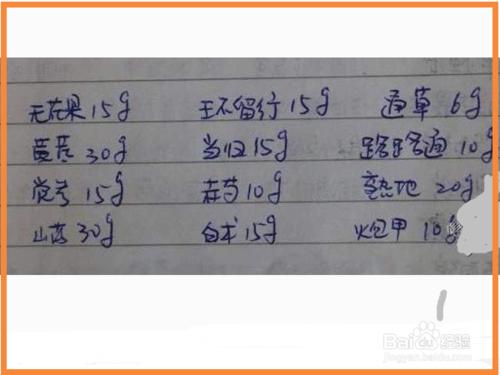 无花果 15g 王不留行 15g 通草 6g
黄芪 30g 当归 15g 路路通 10g
党参 15g 赤芍 10g 熟地 20g
山药 30g 白术 15g 炮甲 10g
1
Baidu 经验
jingyan.baidu.com